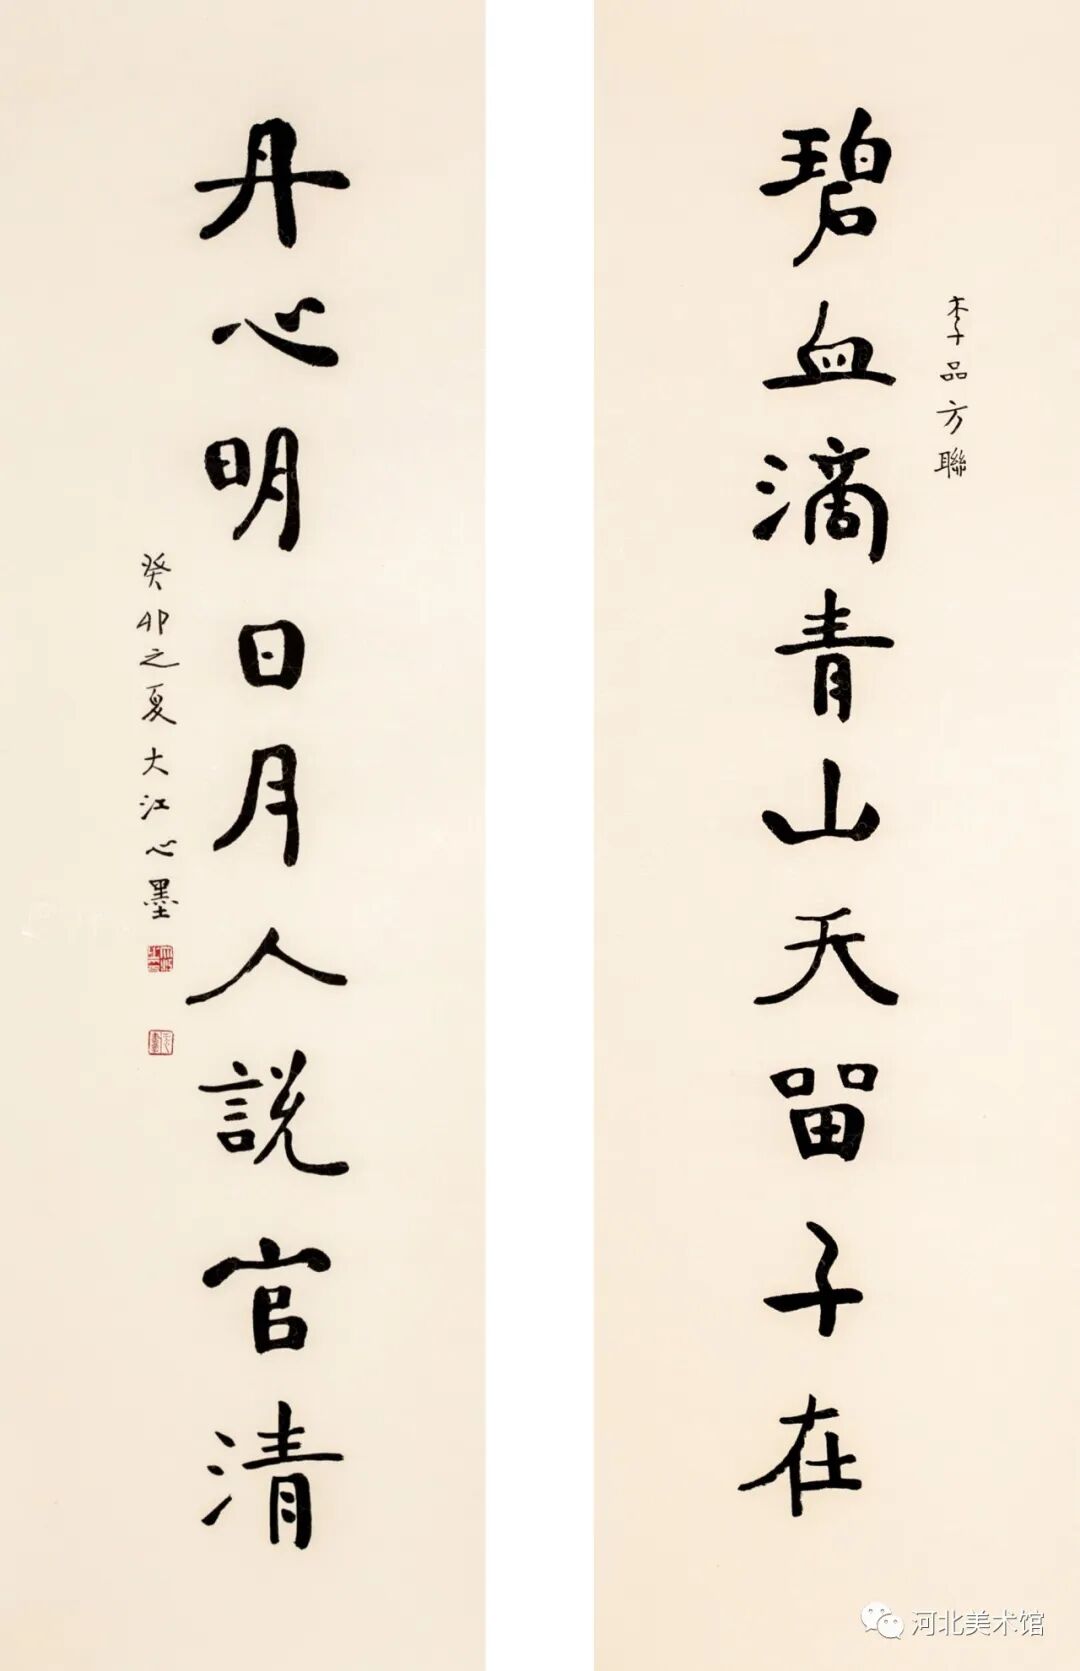 碧血滴青山天留子在
李品方聯
丹心明日月人説官清
癸卯之夏大江心墨
河北美术馆